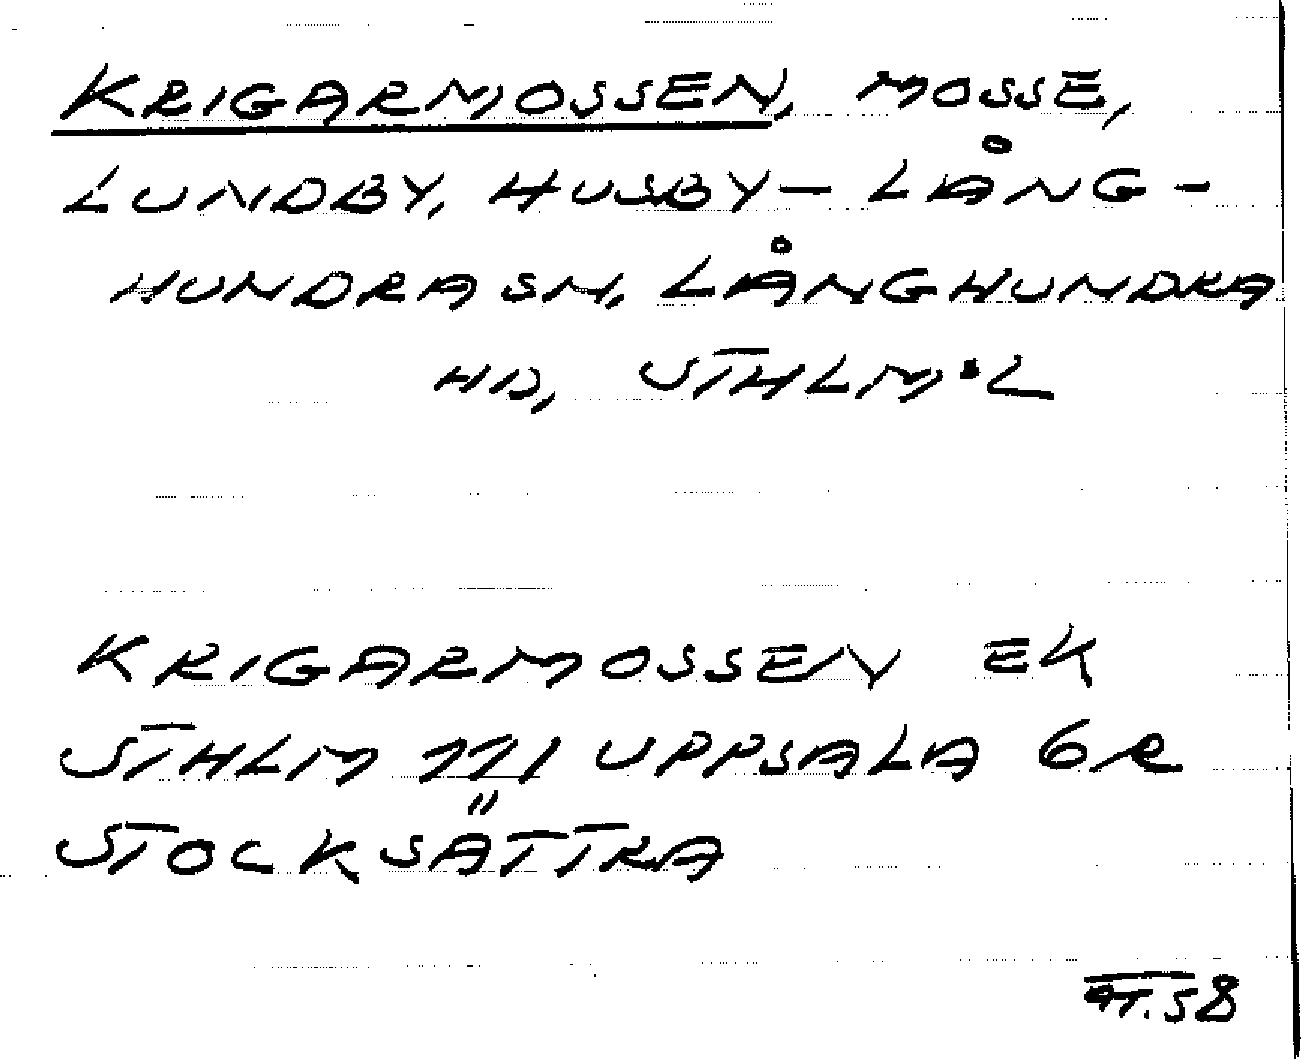 KRIGARMOSSEN, MOSSE,
LUNDBY, HUSBY-LÅNG-
HUNDRA SN, LÅNGHUNDRA
HD, STHLM:L
KRIGARMOSSEN EK
STHLM 111 UPPSALA 6R
STOCKSÄTTRA